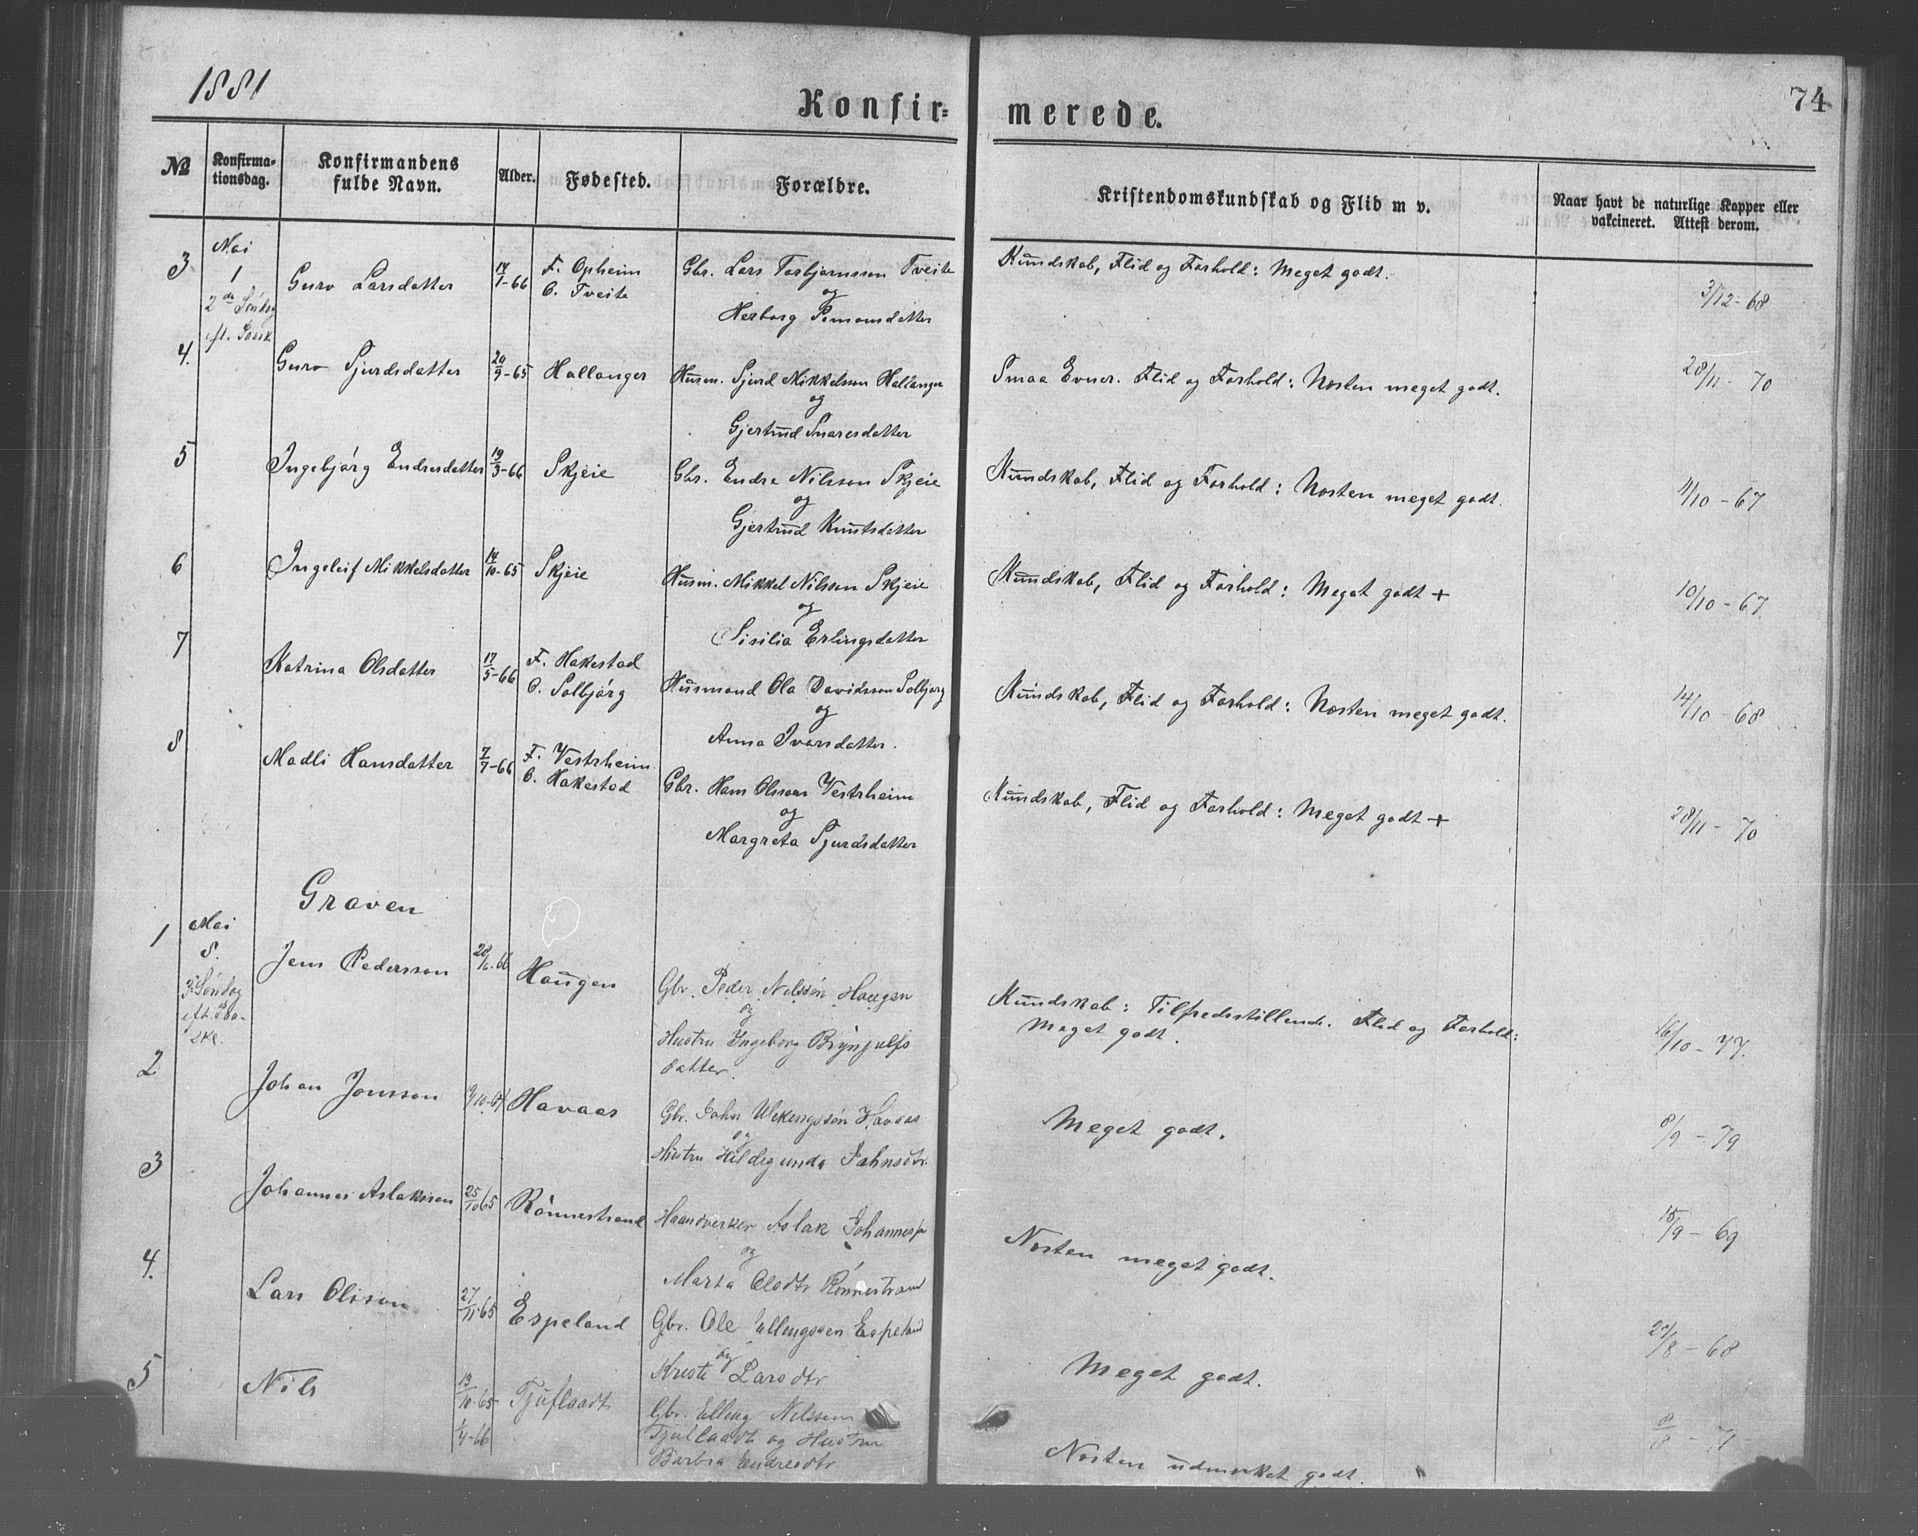 1881
74
Konfir=
merede.
№
Konfirma-
tionsdag.
Konfirmandens
fulde Navn.
Alder.
Fødested.
Forældre.
Kristendomskundskab og Flid m v.
Naar havt de naturlige Kopper eller
vakcineret. Attest derom.
3
Mai
1
2de Søndag
eft. Paask
Guro Larsdatter
14/1-66
F. Opheim
O. Tveite
Gbr. Lars Torbjørnsson Tveite
og
Herborg
Kundskab, Flid og Forhold: Meget godt.
3/12-68
4.
Guro Sjurdsdatter
20/9-65
Hallanger
Husm. Sjurd Mikkelsson Hallanger
og
Gjertrud Snaresdatter
Smaa Evner. Flid og Forhold: Næsten meget godt.
28/11-70
5
Ingebjørg Endresdatter
19/3-66
Skjeie
Gbr. Endre Nilsson Skjeie
og
Gjertrud Knutsdatter
Kundskab, Flid og Forhold: Næsten meget godt.
11/10-67
6
Ingeleif Mikkelsdatter
14/10-65
Skjeie
Husm. Mikkel Nilsson Skjeie
og
Sisilia Erlingsdatter
Kundskab, Flid og Forhold: Meget godt +
10/10-67
7
Katrina Olsdatter
17/5-66
F. Hakestad
O. Solbjørg
Husmand Ola Davidsson Solbjørg
og
Anna Ivarsdatter.
Kundskab, Flid og Forhold: Næsten meget godt.
14/10-68
8
Madli Hansdatter
7/7-66
F. Vestrheim
O. Hakestad
Gbr. Hans Olsson Vestrheim
og
Margreta Sjurdsdatter
Kundskab, Flid og Forhold: Meget godt +
28/11-70
Graven
1
Mai
8.
3. Søndag
eft. Paa-
ske.
Jens Pedersson
28/6-66
Haugen
Gbr. Peder Nilssøn Haugen
og
Hustru Ingeborg Brynjulfs
datter.
Kundskab: Tilfredsstillende. Flid og Forhold:
Meget godt.
16/10-77.
2
Johan Jonsson
Havaas
Gbr. John Havaas
og
Hustru Hildigunda Johnsdtr.
Meget godt.
8/9-79
3
Johannes Aslaksson
25/10 65
Rønnestrand
Haandverker Aslak Johanness
og
Marta Olsdtr Rønnestrand
Næsten meget godt.
15/9-69
4.
Lars Olsson
27/11-65
Espeland
Gbr. Ole Ellingssøn Espeland
og
Kristi Larsdtr
Meget godt.
27/8-68
5
Nils
13/10-65
1/4-66
Tjuflaadt
Gbr. Elling Nilssøn
Tjuflaadt og Hustru
Barbra Endresdtr
Næsten udmærket godt.